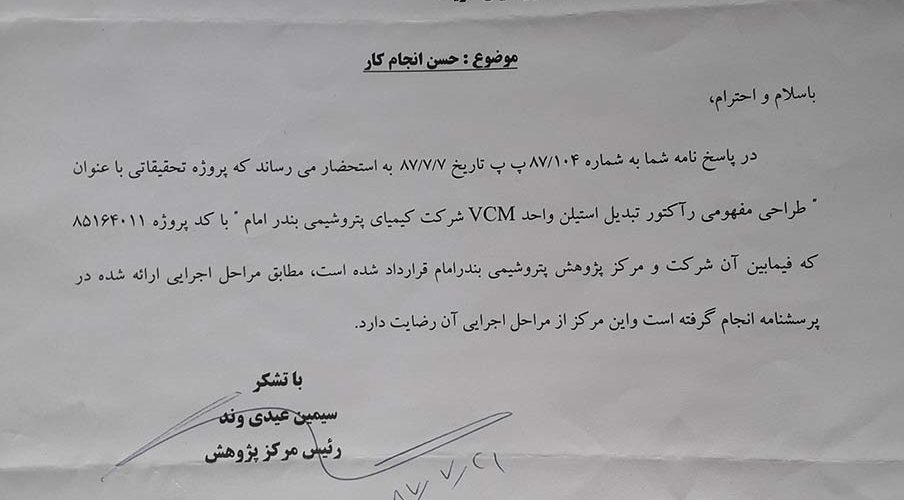 موضوع : حسن انجام کار
باسلام و احترام،
در پاسخ نامه شما به شماره ۸۷/۱۰۴پ پ تاریخ ۸۷/۷/۷ به استحضار می رساند که پروژه تحقیقاتی با عنوان
" طراحی مفهومی رآکتور تبدیل استیلن واحد VCM شرکت کیمیای پتروشیمی بندر امام " با کد پروژه ۸۵۱۶۴۰۱۱
که فیمابین آن شرکت و مرکز پژوهش پتروشیمی بندرامام قرارداد شده است، مطابق مراحل اجرایی ارائه شده در
پرسشنامه انجام گرفته است واین مرکز از مراحل اجرایی آن رضایت دارد.
با تشکر
سیمین عیدی وند
رئیس مرکز پژوهش